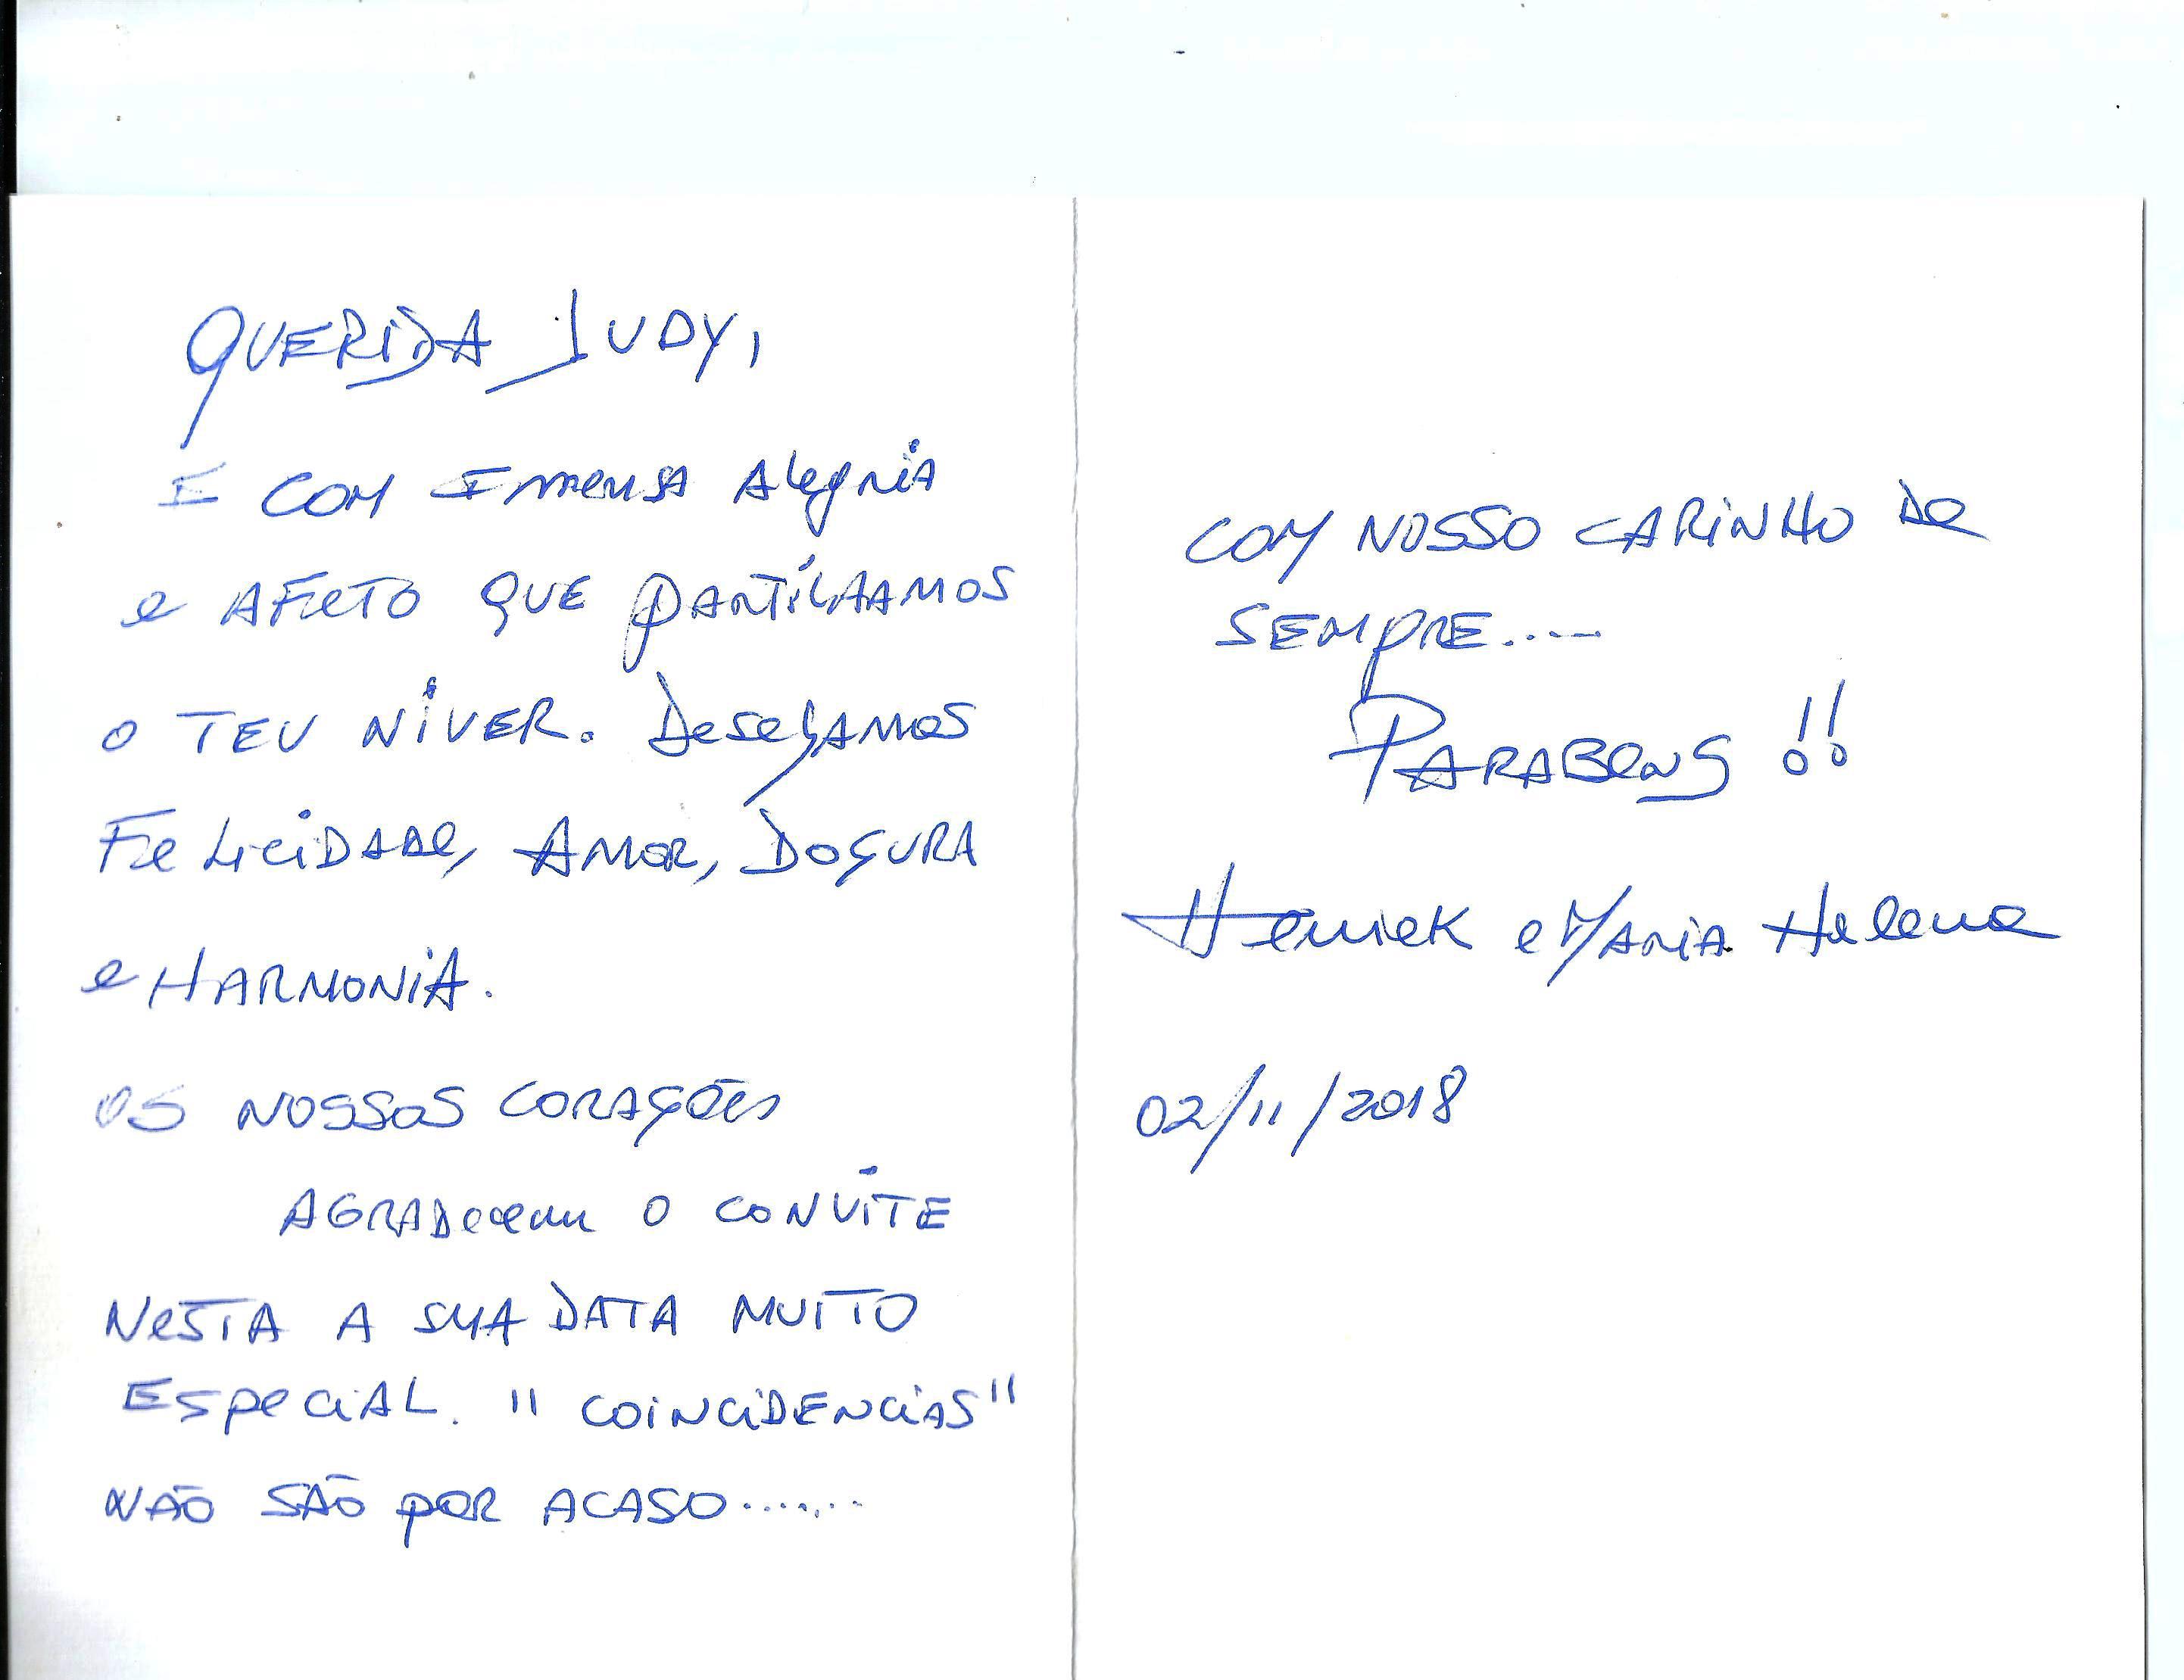 QUERIDA JUDY,
E COM IMENSA ALEGRIA
e AFETO QUE PARTILHAMOS
O TEU NIVER. DESEJAMOS
FELICIDADE, AMOR, DOÇURA
e HARMONIA.
OS NOSSOS CORAÇÕES
AGRADECEM O CONVITE
NESTA A SUA DATA MUITO
ESPECIAL. "COINCIDENCIAS"
NÃO SÃO POR ACASO.......
COM NOSSO CARINHO DE
SEMPRE....
PARABENS!!
e MARIA Helena
02/11/2018